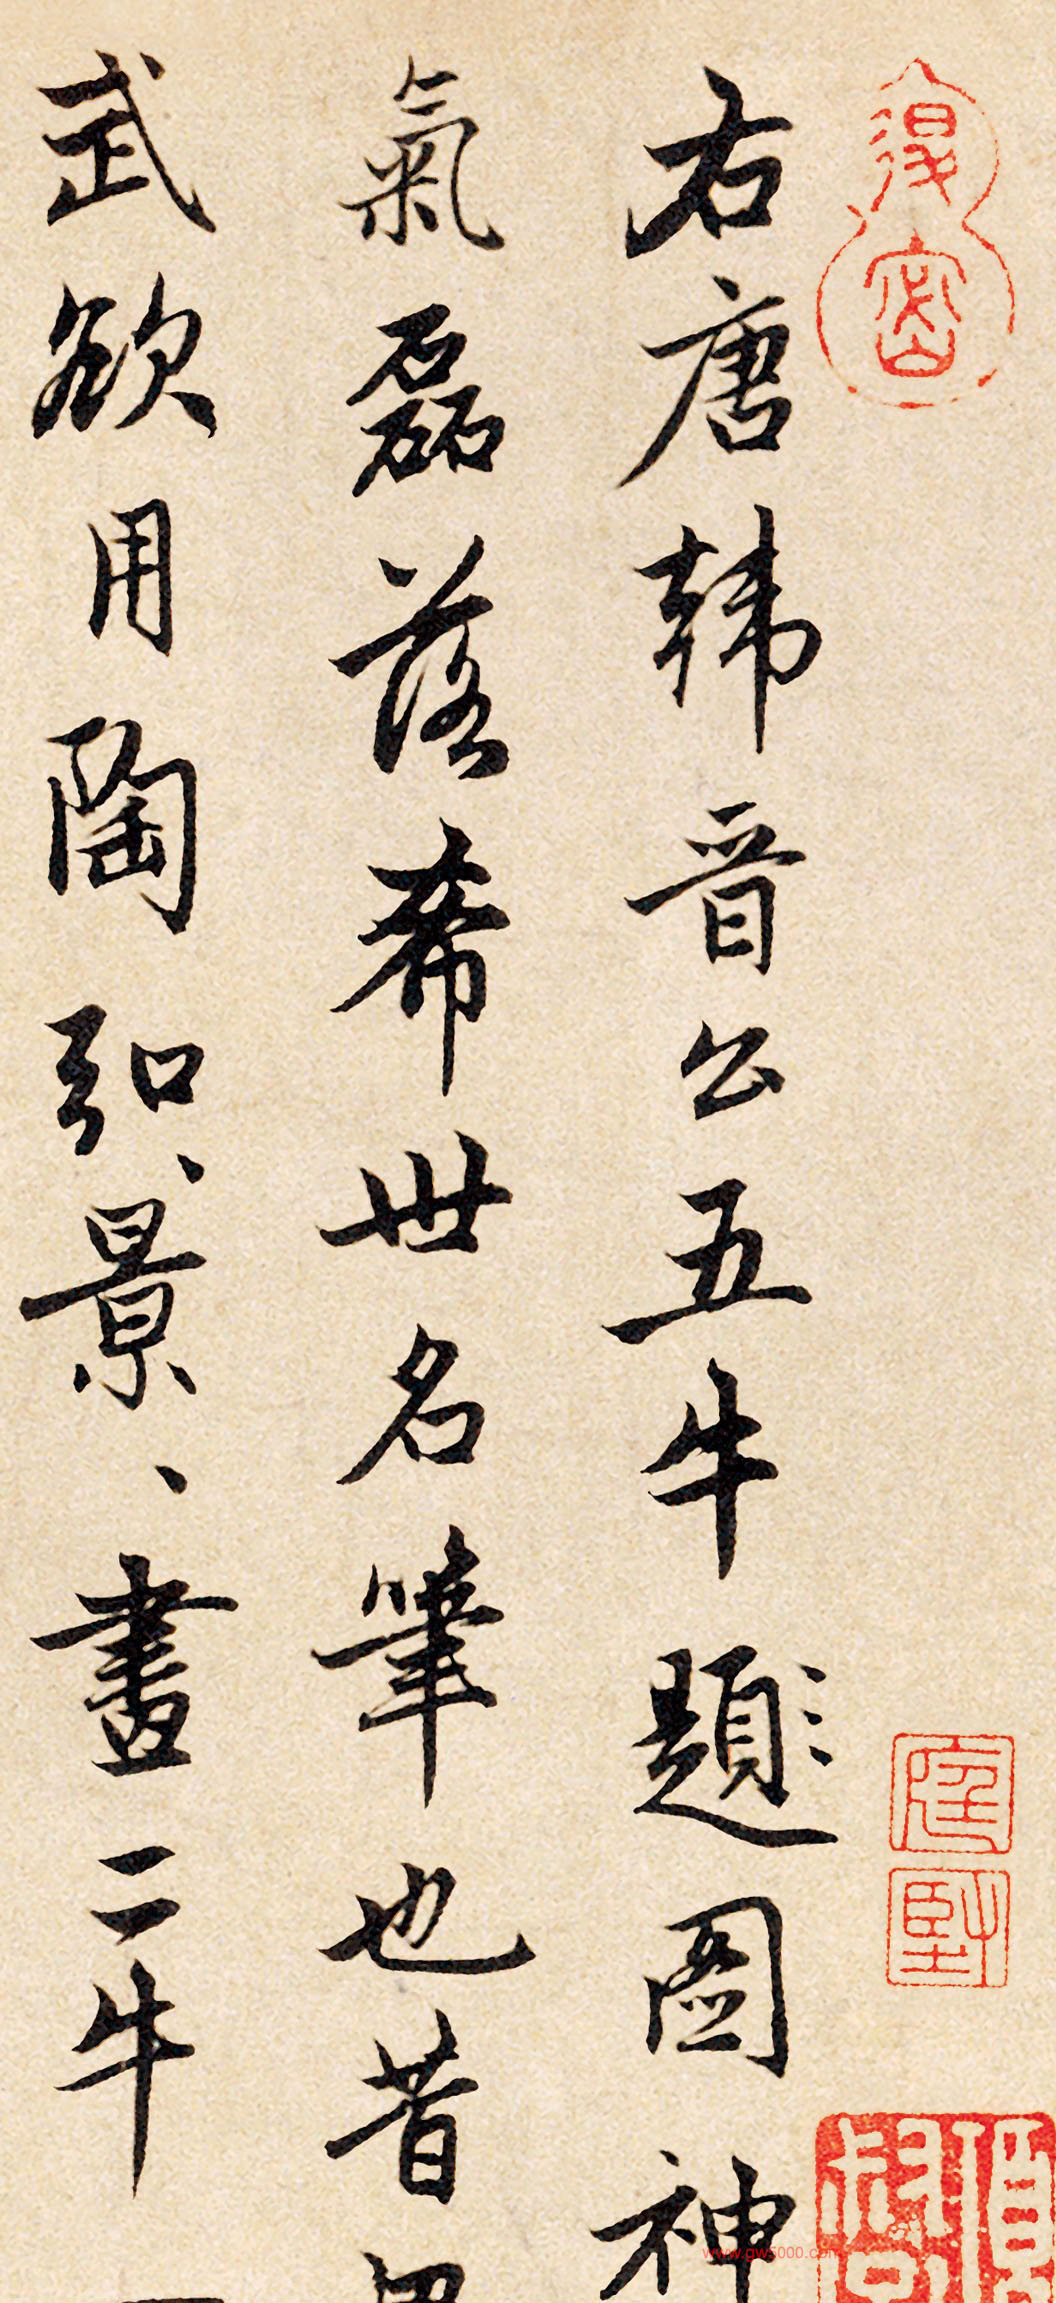 退密
庭
堅
右唐韓晋公五牛題圖神
氣磊落希世名筆也昔
武欲用陶弘景畫二牛
www.gw5000.com